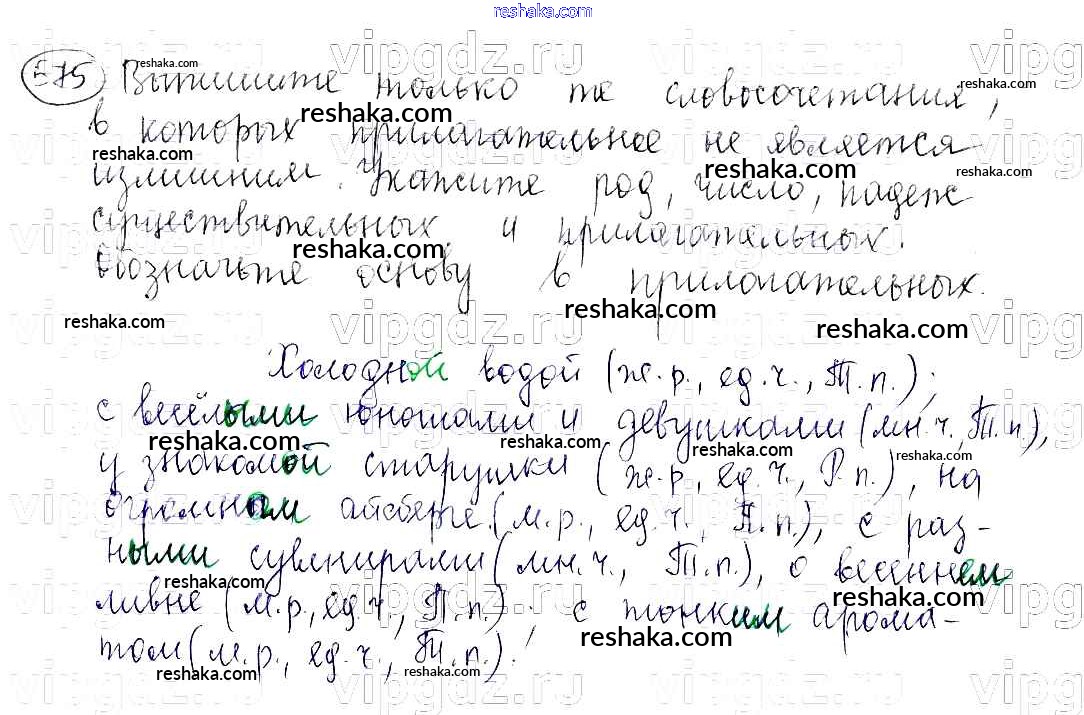 reshaka.ru
575 Выпишите только те словосочетания,
в которых прилагательное не является
излишним. Укажите род, число, падеж
существительных и прилагательных.
Обозначьте основу в прилагательных.
Холодной водой (ж.р., ед.ч., Т.п.);
с весёлыми юношами и девушками (мн.ч., Т.п.),
у знакомой старушки (ж.р., ед.ч., Р.п.), на
огромном айсберге (м.р., ед.ч., П.п.), с раз-
ными сувенирами (мн.ч., Т.п.), о весеннем
ливне (м.р., ед.ч., П.п.); с тонким арома-
том (м.р., ед.ч., Т.п.).